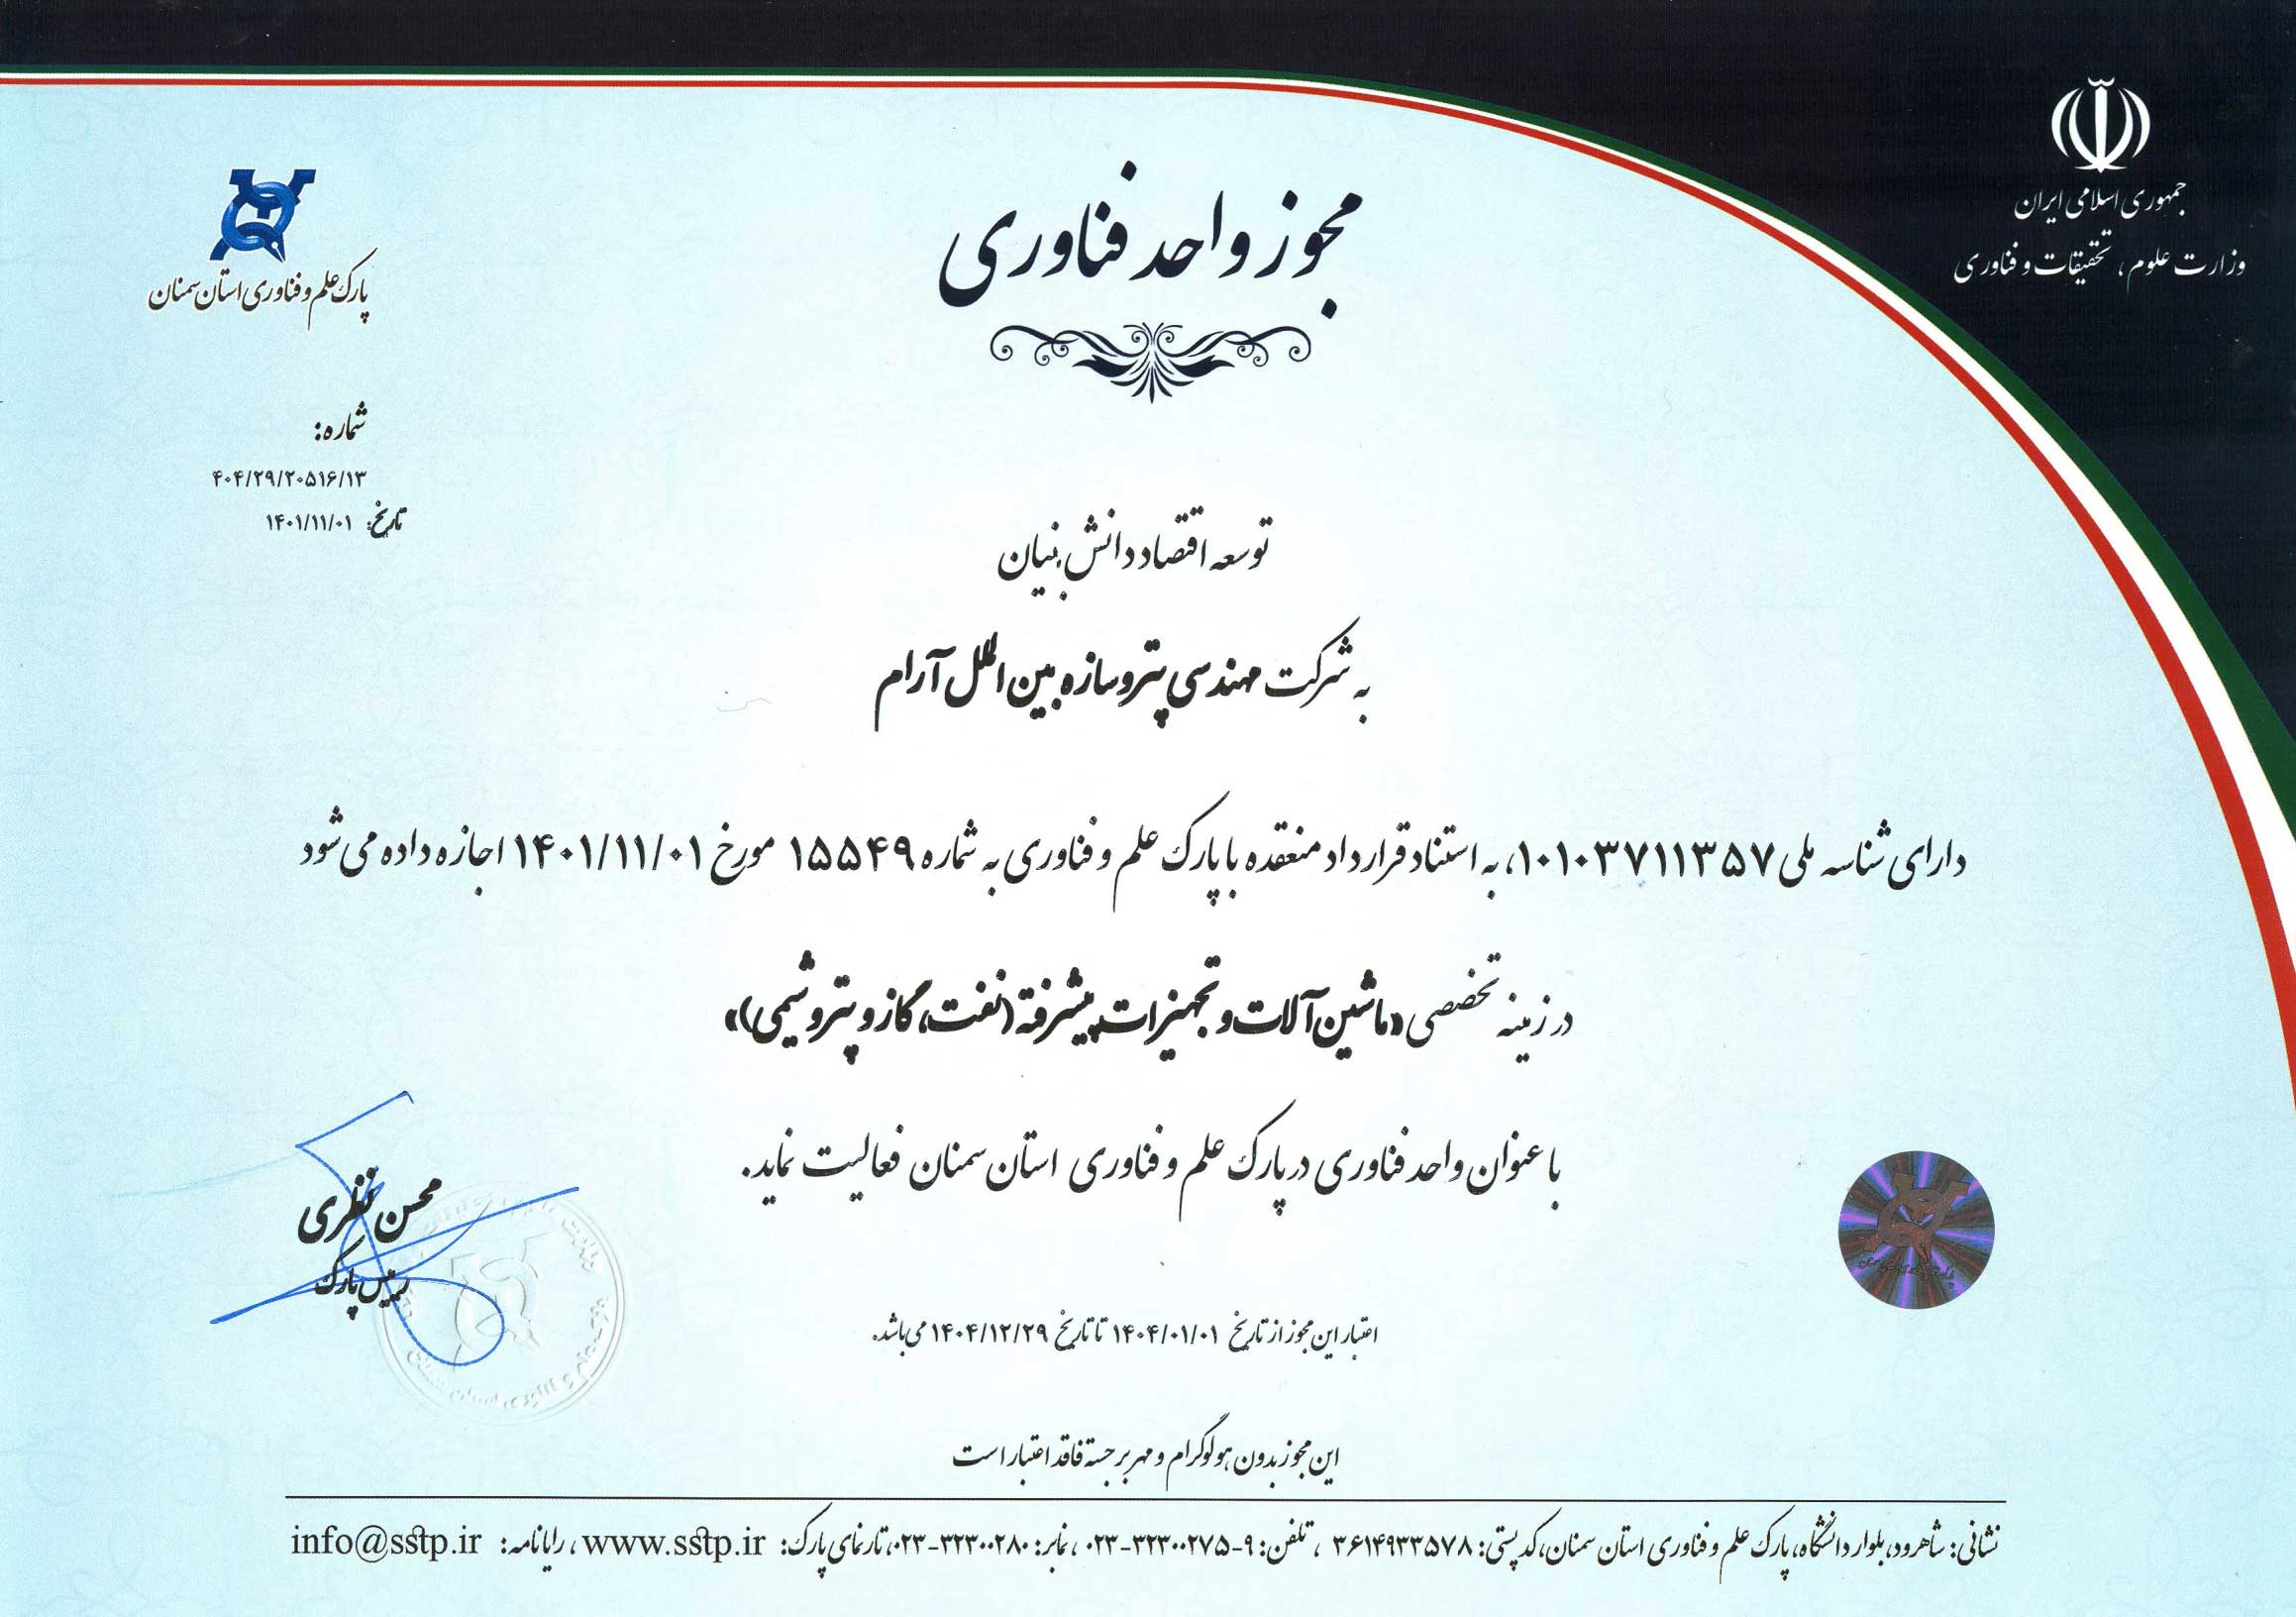 جمهوری اسلامی ایران
وزارت علوم، تحقیقات و فناوری
مجوز واحد فناوری
پارک علم و فناوری استان سمنان
شماره:
۴۰۴/۲۹/۲۰۵۱۶/۱۳
تاریخ: ۱۴۰۱/۱۱/۰۱
توسعه اقتصاد دانش بنیان
به شرکت مهندسی پتروسازه بین الملل آرام
دارای شناسه ملی ۱۰۱۰۳۷۱۱۳۵۷، به استناد قرارداد منعقده با پارک علم و فناوری به شماره ۱۵۵۴۹ مورخ ۱۴۰۱/۱۱/۰۱ اجازه داده می شود
در زمینه تخصصی «ماشین آلات و تجهیزات پیشرفته (نفت، گاز و پتروشیمی)»
با عنوان واحد فناوری در پارک علم و فناوری استان سمنان فعالیت نماید.
محسن نظری
رئیس پارک
اعتبار این مجوز از تاریخ ۱۴۰۴/۰۱/۰۱ تا تاریخ ۱۴۰۴/۱۲/۲۹ می باشد.
این مجوز بدون هولوگرام و مهر برجسته فاقد اعتبار است
نشانی: شاهرود، بلوار دانشگاه، پارک علم و فناوری استان سمنان، کد پستی: ۳۶۱۴۹۳۳۵۷۸ ، تلفن: ۹-۳۲۳۰۰۲۷۵-۰۲۳ ، نمابر: ۳۲۳۰۰۲۸۰-۰۲۳، تارنمای پارک: www.sstp.ir ، رایانامه: info@sstp.ir